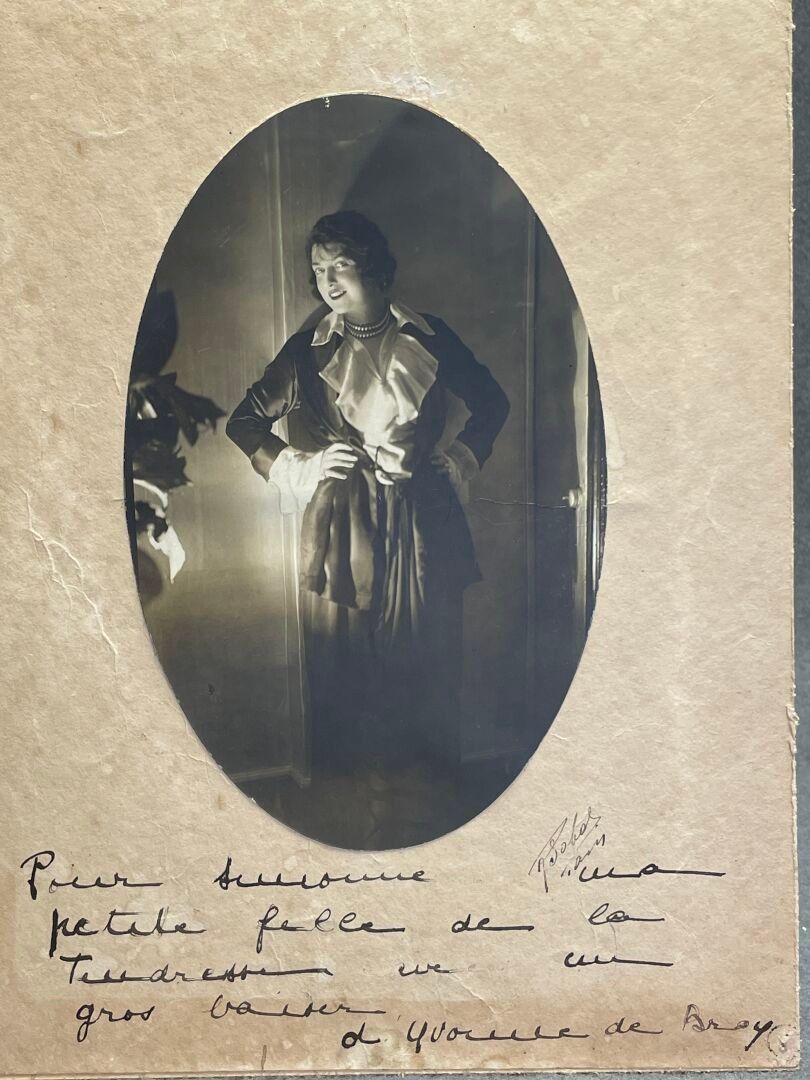 Sobol
Paris
Pour Simonne ma
petite fille de la
Tendresse un
gros baiser
d Yvonne de Bray